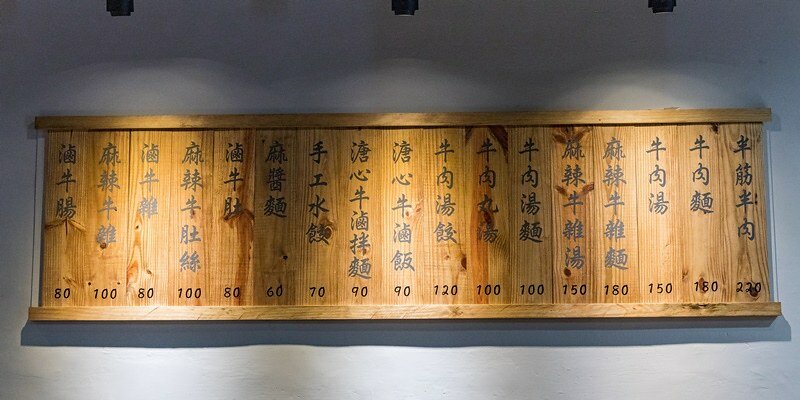 半筋半肉 220
牛肉麵 180
牛肉湯 150
麻辣牛雜麵 180
麻辣牛雜湯 150
牛肉湯麵 100
牛肉丸湯 100
牛肉湯餃 120
溏心牛滷飯 90
溏心牛滷拌麵 90
手工水餃 70
麻醬麵 60
滷牛肚 80
麻辣牛肚絲 100
滷牛雜 80
麻辣牛雜 100
滷牛腸 80